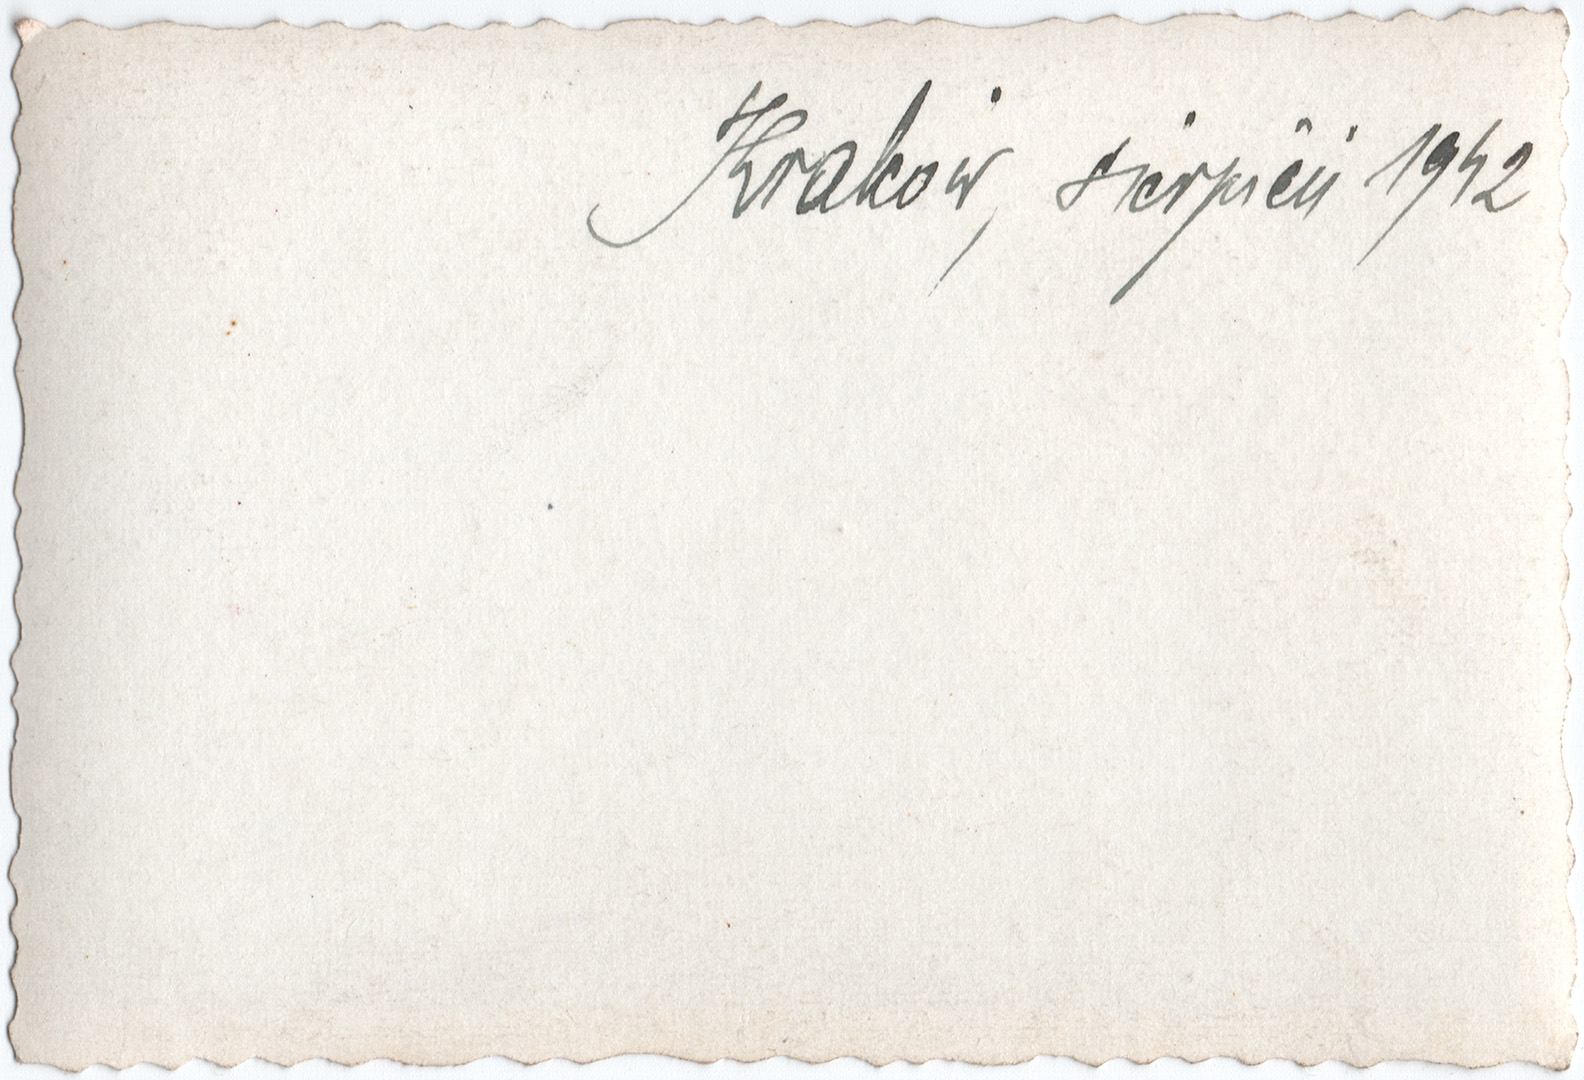 Kraków, sierpień 1942